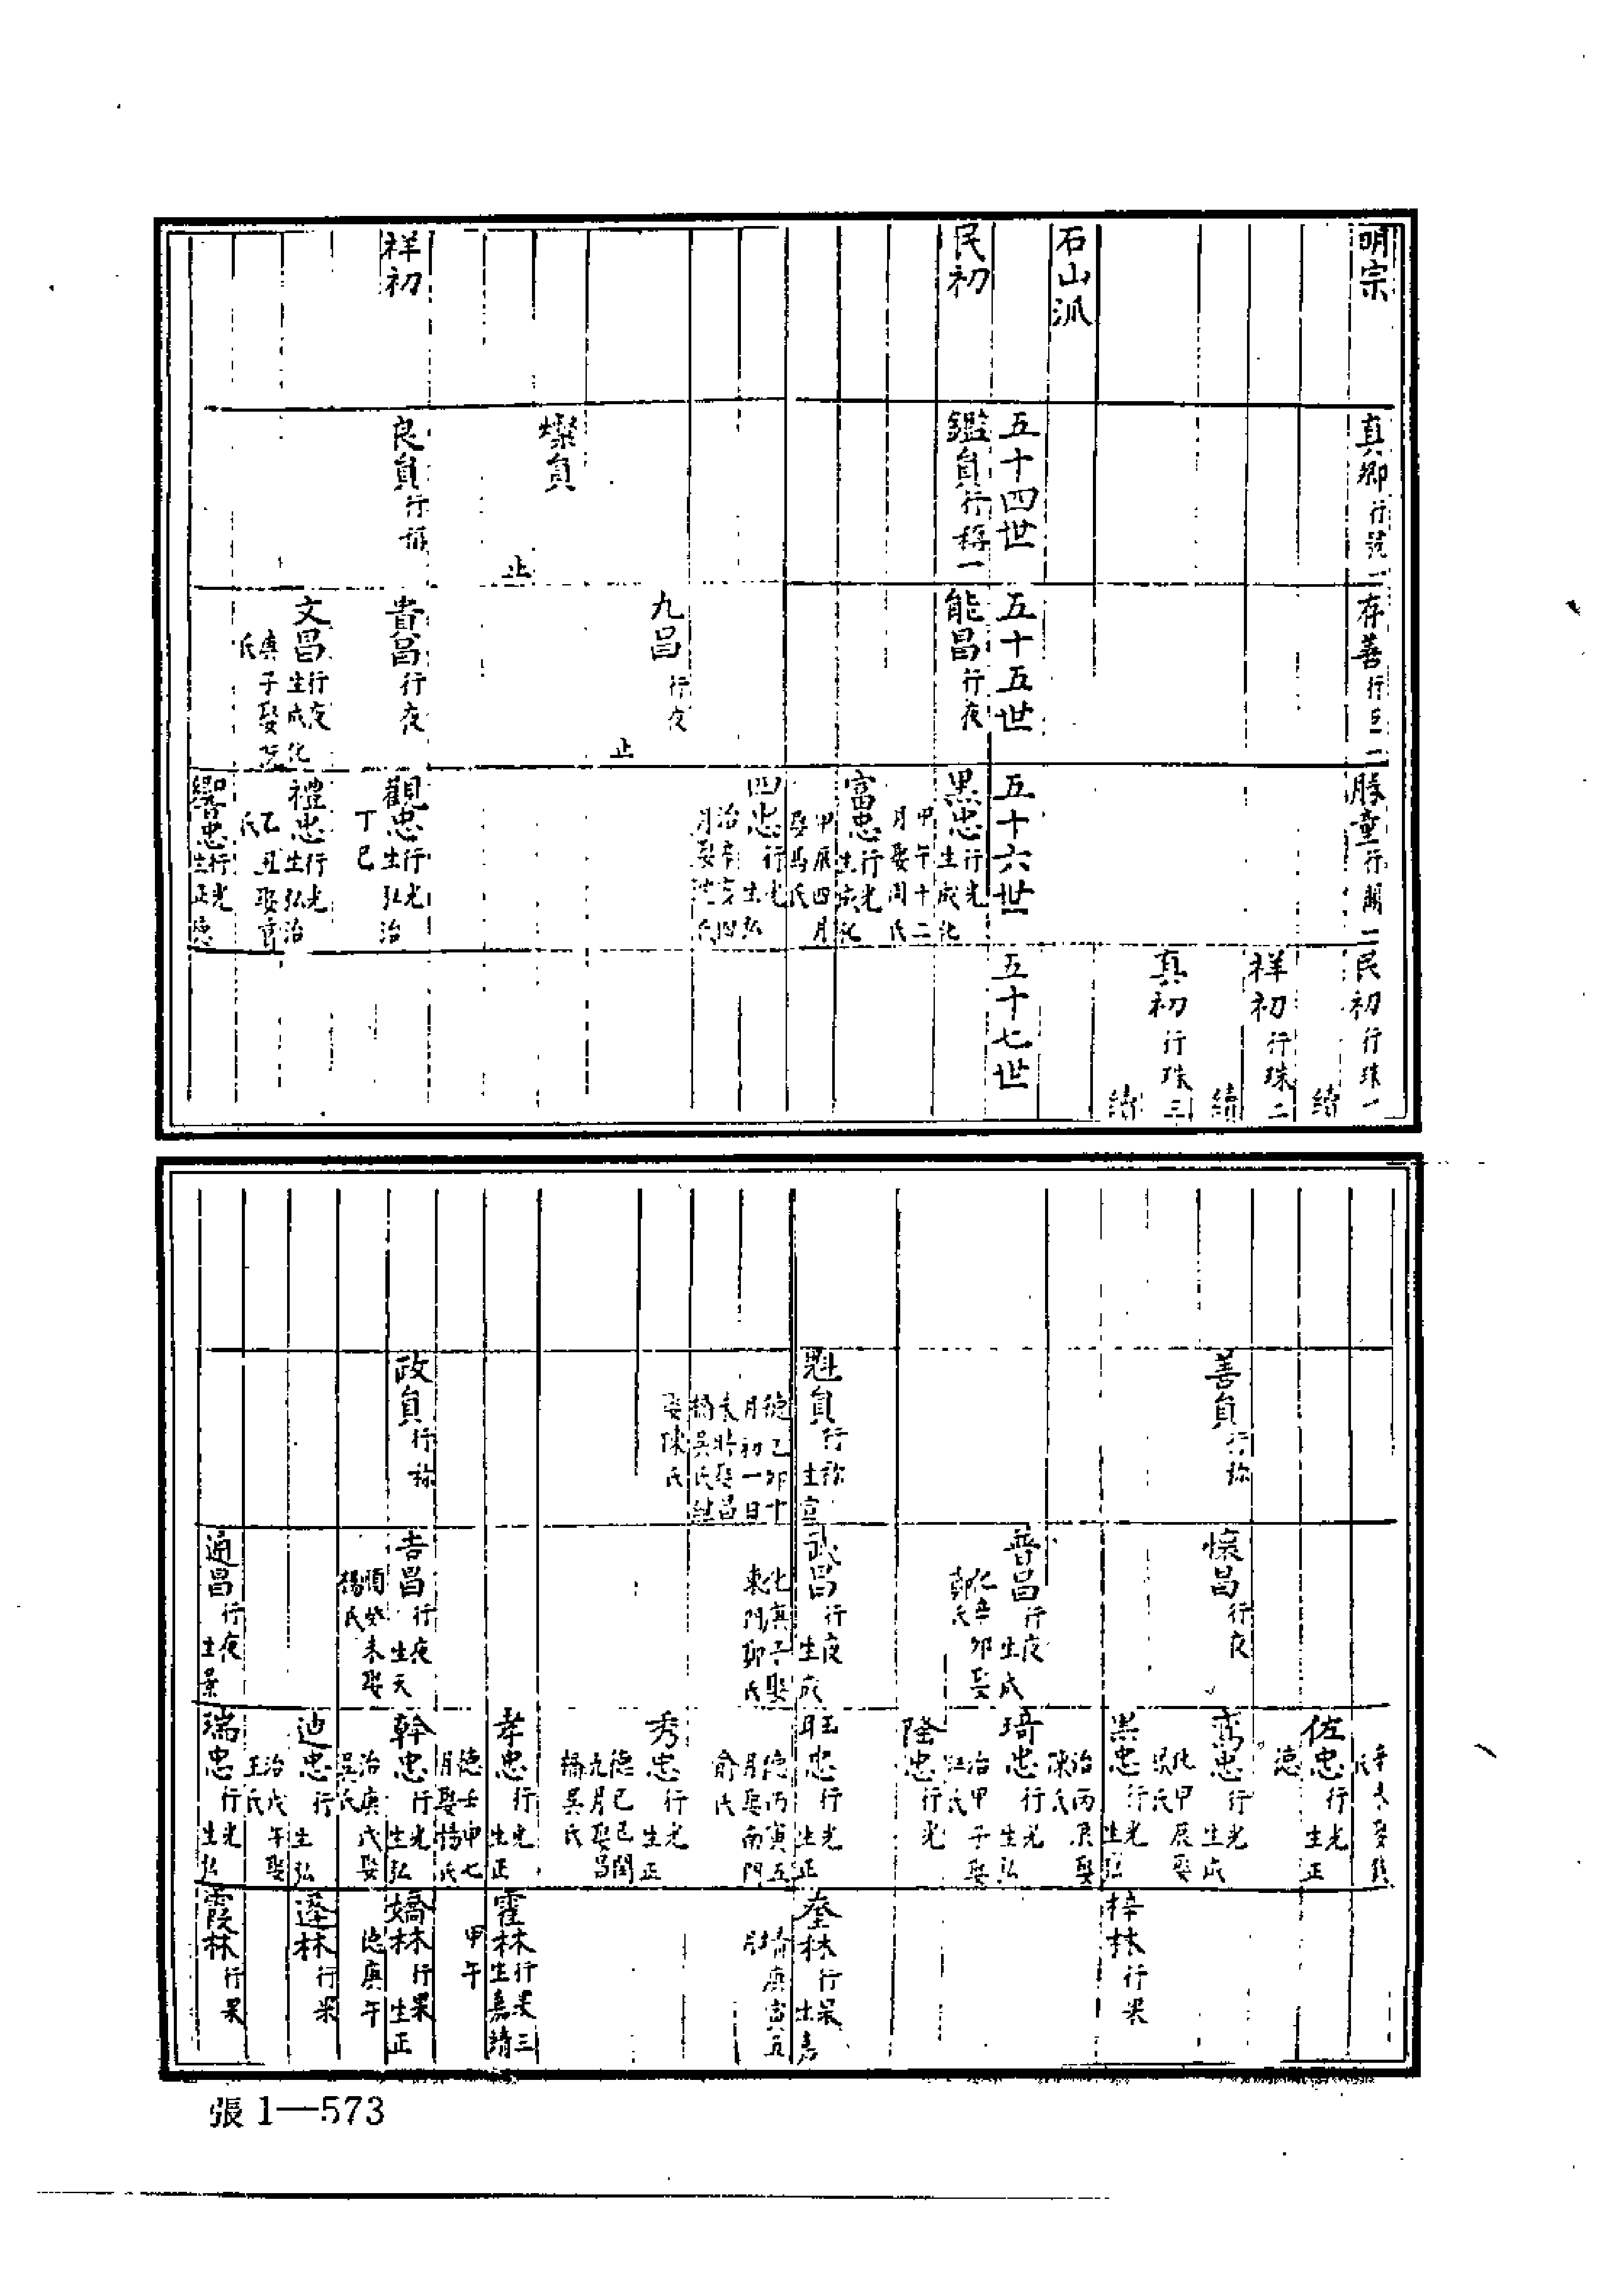 明宗
真卿行號一
存善行巨二
勝童行關二
民初行珠一
續
祥初行珠二
續
真初行珠三
續
石山派
五十四世
五十五世
五十六世
五十七世
民初
鑑貟行稱一
能昌行夜
黑忠行光生成化
甲午十二月娶周氏
富忠行光生成化
甲辰四月娶馬氏
四忠行光生弘
治辛亥四月娶沈氏
九昌行夜
止
燦貟
止
祥初
良貟行稱
貴昌行夜
觀忠行光生弘治
丁巳
文昌行夜生成化
庚子娶范氏
禮忠行光生弘治
乙丑娶曹氏
響忠行光生正德
辛未娶錢氏
佐忠行光生正
德
善貟行称
懷昌行夜
鸞忠行光生成
化甲辰娶吴氏
杲忠行光生弘
治丙辰娶陳氏
梓林行杲
普昌行夜生成
化辛卯娶郭氏
琦忠行光生弘
治甲子娶江氏
隆忠行光
魁貟行称生宣
德乙卯十月初一日未時娶昌橋吴氏継娶陳氏
武昌行夜生成
化庚子娶東門郭氏
旺忠行光生正
德丙寅五月娶南門俞氏
奎林行杲生嘉
靖庚寅五月
秀忠行光生正
德己巳閏九月娶昌橋吴氏
孝忠行光生正
德壬申七月娶楊氏
霍林行杲三生嘉靖
甲午
政貟行称
吉昌行夜生天
順癸未娶楊氏
幹忠行光生弘
治庚戌娶吴氏
嬌林行杲生正
德庚午
迪忠行生弘
治戊午娶王氏
逢林行杲
通昌行夜生景
瑞忠行光生弘
霞林行杲
張1—573